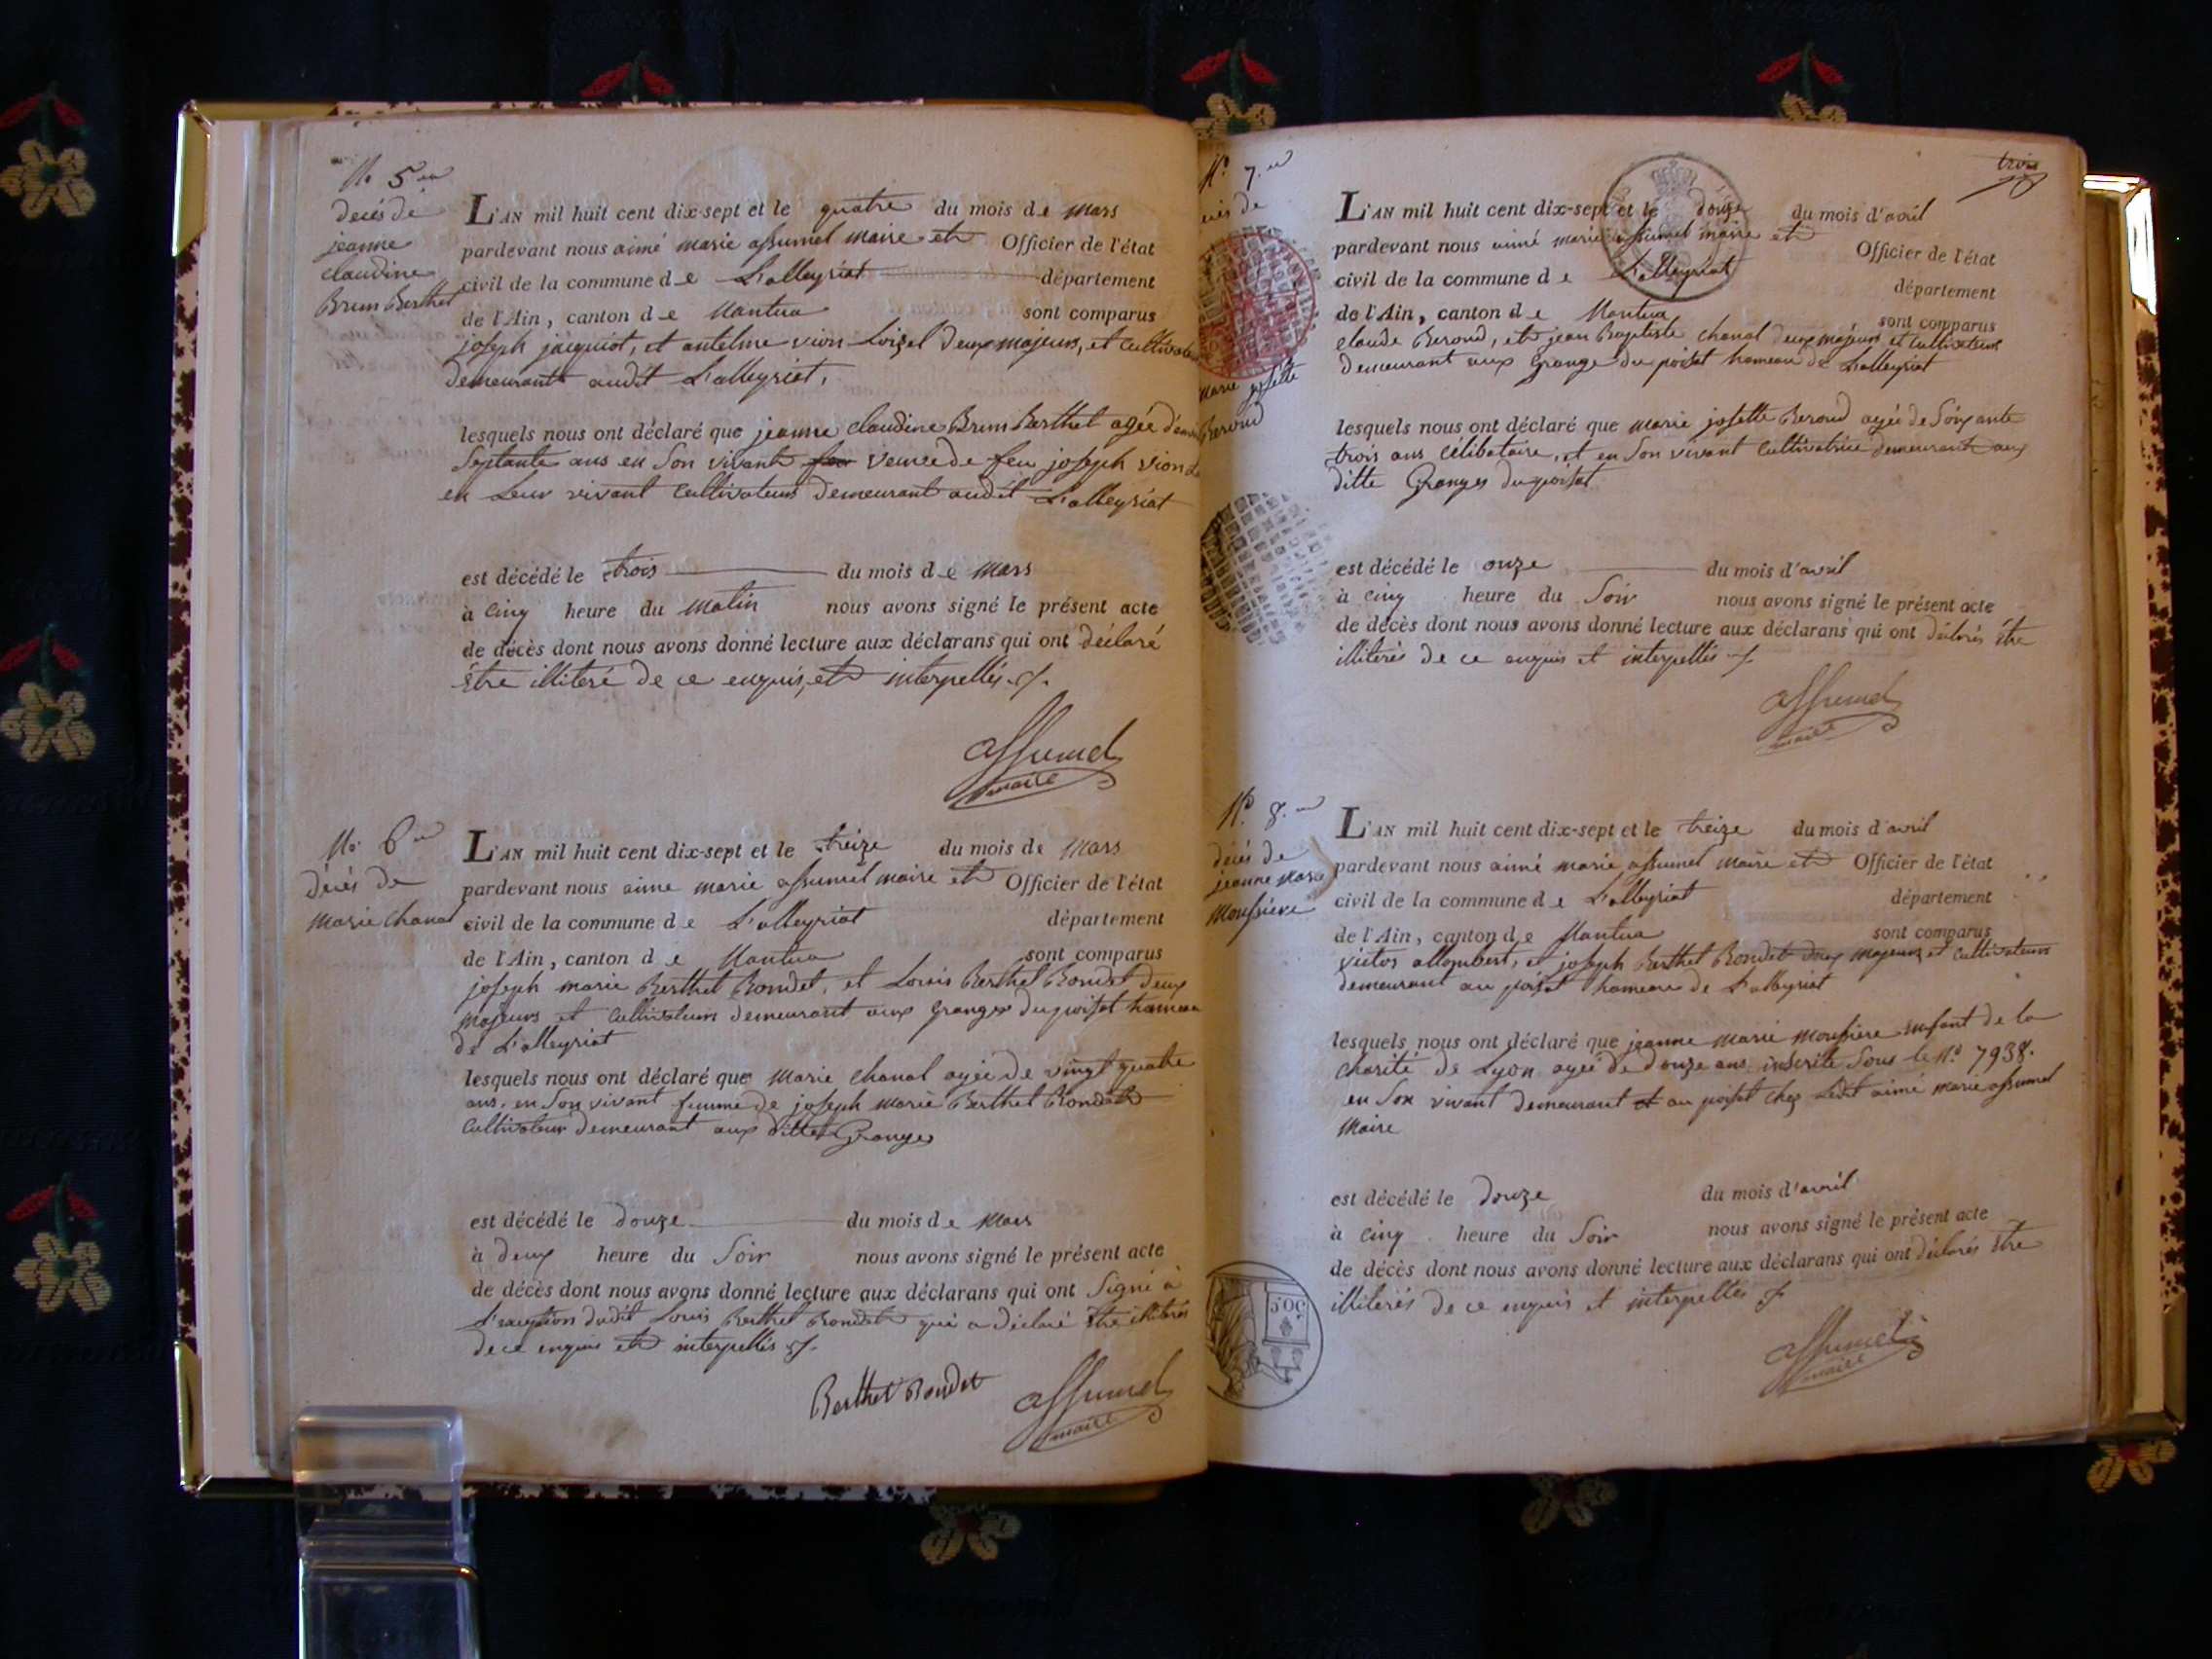 No 5.me
decès de
jeanne
claudine
Brun Berthet
L'AN mil huit cent dix-sept et le quatre du mois de mars
pardevant nous aimé marie assumel maire et Officier de l'état
civil de la commune de L'alleyriat département
de l'Ain, canton de Nantua sont comparus
joseph jacquiot, et antelme vion Loizel deux majeurs, et cultivateurs
demeurants audit L'alleyriat,
lesquels nous ont déclaré que jeanne claudine Brun Berthet agée
septante ans en son vivant veuve de feu joseph vion
en Leur vivant cultivateurs demeurant audit L'alleyriat
est décédé le trois du mois de mars
à cinq heure du matin nous avons signé le présent acte
de décès dont nous avons donné lecture aux déclarans qui ont déclaré
être illiteré de ce enquis, et interpellés ./.
assumel
maire
No 6.me
décès de
marie chanal
L'AN mil huit cent dix-sept et le treize du mois de mars
pardevant nous aimé marie assumel maire et Officier de l'état
civil de la commune de L'alleyriat département
de l'Ain, canton de Nantua sont comparus
joseph marie Berthet Bondet, et Louis Berthet Bondet deux
majeurs et cultivateurs demeurant aux granges du poizat hameau
de L'alleyriat
lesquels nous ont déclaré que marie chanal agée de vingt quatre
ans, en son vivant femme de joseph marie Berthet Bondet
cultivateur demeurant aux dittes Granges
est décédé le douze du mois de mars
à deux heure du soir nous avons signé le présent acte
de décès dont nous avons donné lecture aux déclarans qui ont signé à
L'exception dudit Louis Berthet Bondet qui a déclaré être illiterés
de ce enquis et interpellés ./.
Berthet Bondet assumel
maire
trois
No. 7.me
décès de
marie josette
Beroud
L'AN mil huit cent dix-sept et le douze du mois d'avril
pardevant nous aimé marie assumel maire et Officier de l'état
civil de la commune de L'alleyriat département
de l'Ain, canton de Nantua sont comparus
claude Beroud, et jean Baptiste chanal deux majeurs et cultivateurs
demeurant aux Grange du poizat hameau de L'alleyriat
lesquels nous ont déclaré que marie josette Beroud agée de soixante
trois ans célibataire, et en son vivant cultivatrice demeurant aux
ditte Granges du poizat
est décédé le onze du mois d'avril
à cinq heure du soir nous avons signé le présent acte
de décès dont nous avons donné lecture aux déclarans qui ont déclarés être
illiterés de ce enquis et interpellés ./.
assumel
maire
No. 8.me
décès de
jeanne marie
moussiere
L'AN mil huit cent dix-sept et le treize du mois d'avril
pardevant nous aimé marie assumel maire et Officier de l'état
civil de la commune de L'alleyriat département
de l'Ain, canton de Nantua sont comparus
victor allombert, et joseph Berthet Bondet deux majeurs et cultivateurs
demeurant au poizat hameau de L'alleyriat
lesquels nous ont déclaré que jeanne marie moussiere enfant de la
charité de Lyon agée de douze ans inscrite sous le No. 7938.
en son vivant demeurant au poizat chez Ledit aimé marie assumel
maire
est décédé le douze du mois d'avril
à cinq heure du soir nous avons signé le présent acte
de décès dont nous avons donné lecture aux déclarans qui ont déclarés être
illiterés de ce enquis et interpellés ./.
assumel
maire